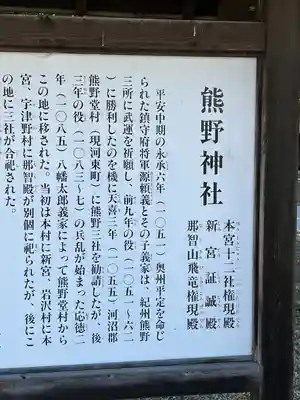 熊野神社
本宮十二社権現殿
新宮証誠殿
那智山飛竜権現殿
平安中期の永承六年(一〇五一)奥州平定を命じ
られた鎮守府将軍源頼義とその子義家は、紀州熊野
三所に武運を祈願し、前九年の役(一〇五一~六二
)に勝利したのを機に天喜三年(一〇五五)河沼郡
熊野堂村(現河東町)に熊野三社を勧請したが、後
三年の役(一〇八三~七)の兵乱が始まった応徳二
年(一〇八五)八幡太郎義家によって熊野堂村から
この地に移された。当初は本村に新宮、岩沢村に本
宮、宇津野村に那智殿が別個に祀られたが、後にこ
の地に三社が合祀された。